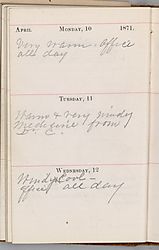 April Monday, 10 1871.
Very warm. Office
all day
Tuesday, 11
Warm & very windy
Medicine from
Dr. C.
Wednesday, 12
Windy & cool -
office all day